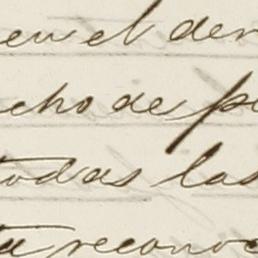 en el der
cho de p
todas las
ta recono